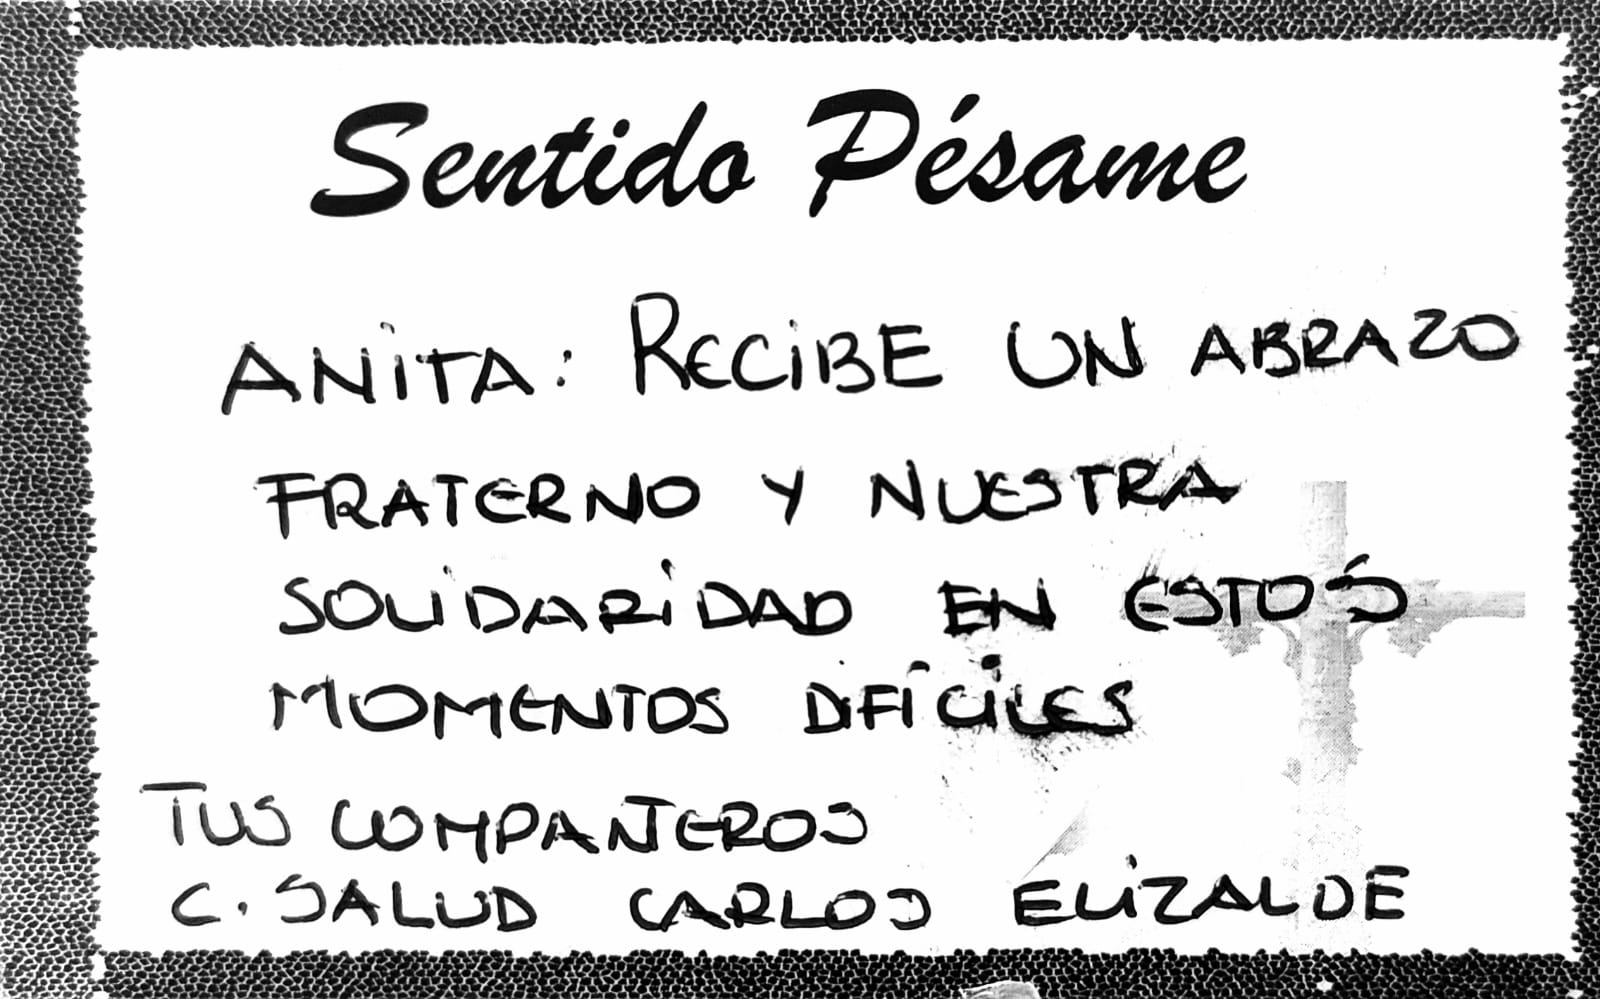 Sentido Pésame
ANITA: RECIBE UN ABRAZO
FRATERNO Y NUESTRA
SOLIDARIDAD EN ESTOS
MOMENTOS DIFÍCILES
TUS COMPAÑEROS
C. SALUD CARLOS ELIZALDE